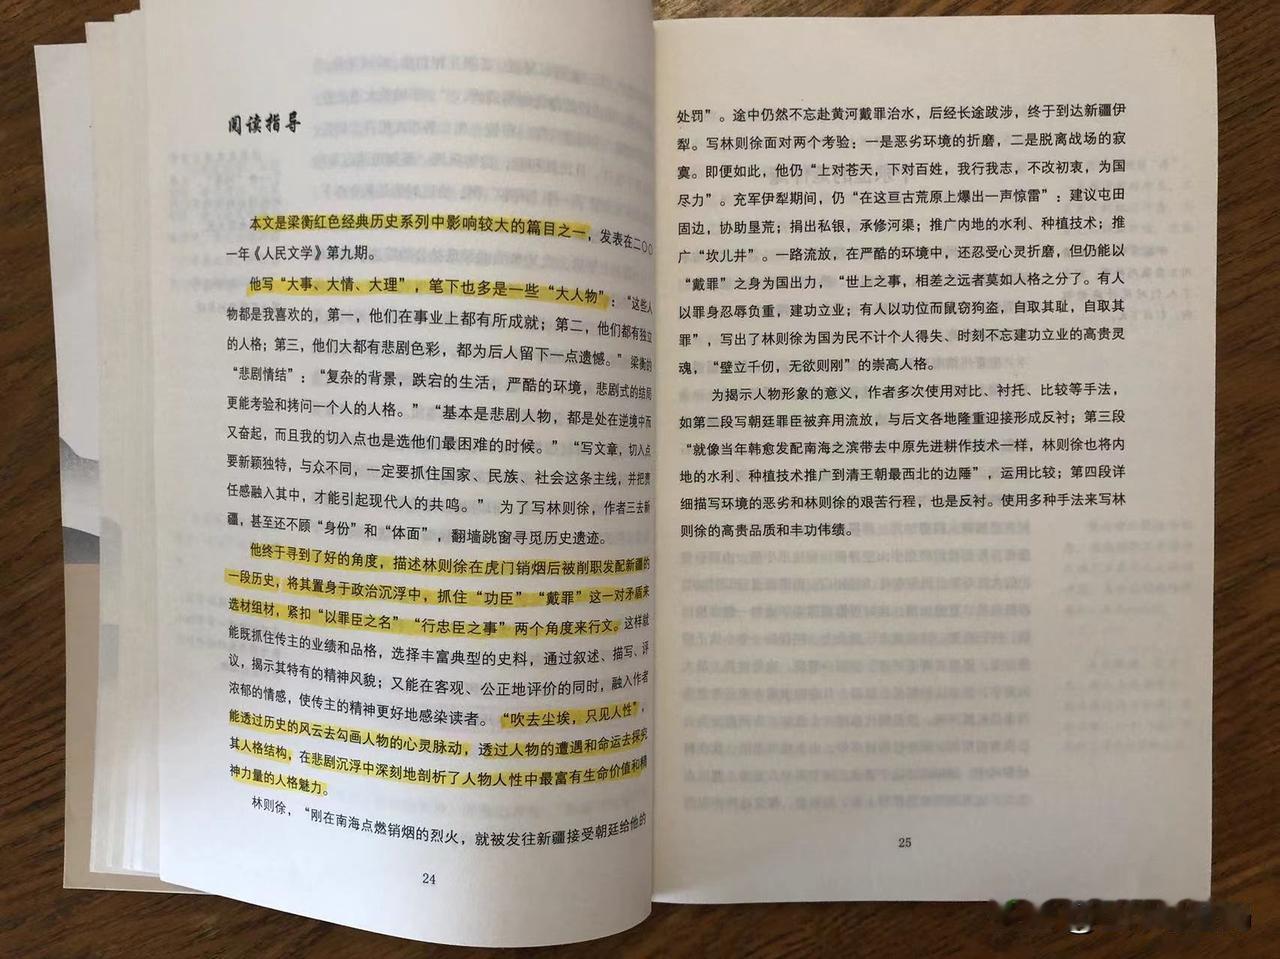 阅读指导
本文是梁衡红色经典历史系列中影响较大的篇目之一，发表在二〇〇
一年《人民文学》第九期。
他写“大事、大情、大理”，笔下也多是一些“大人物”：“这些人
物都是我喜欢的，第一，他们在事业上都有所成就；第二，他们都有独立
的人格；第三，他们大都有悲剧色彩，都为后人留下一点遗憾。”梁衡的
“悲剧情结”：“复杂的背景，跌宕的生活，严酷的环境，悲剧式的结局
更能考验和拷问一个人的人格。”“基本是悲剧人物，都是处在逆境中而
又奋起，而且我的切入点也是选他们最困难的时候。”“写文章，切入点
要新颖独特，与众不同，一定要抓住国家、民族、社会这条主线，并把责
任感融入其中，才能引起现代人的共鸣。”为了写林则徐，作者三去新
疆，甚至还不顾“身份”和“体面”，翻墙跳窗寻觅历史遗迹。
他终于寻到了好的角度，描述林则徐在虎门销烟后被削职发配新疆的
一段历史，将其置身于政治沉浮中，抓住“功臣”“戴罪”这一对矛盾来
选材组材，紧扣“以罪臣之名”“行忠臣之事”两个角度来行文。这样就
能既抓住传主的业绩和品格，选择丰富典型的史料，通过叙述、描写、评
议，揭示其特有的精神风貌；又能在客观、公正地评价的同时，融入作者
浓郁的情感，使传主的精神更好地感染读者。“吹去尘埃，只见人性”，
能透过历史的风云去勾画人物的心灵脉动，透过人物的遭遇和命运去探究
其人格结构，在悲剧沉浮中深刻地剖析了人物人性中最富有生命价值和精
神力量的人格魅力。
林则徐，“刚在南海点燃销烟的烈火，就被发往新疆接受朝廷给他的
24
处罚”。途中仍然不忘赴黄河戴罪治水，后经长途跋涉，终于到达新疆伊
犁。写林则徐面对两个考验：一是恶劣环境的折磨，二是脱离战场的寂
寞。即便如此，他仍“上对苍天，下对百姓，我行我志，不改初衷，为国
尽力”。充军伊犁期间，仍“在这亘古荒原上爆出一声惊雷”：建议屯田
固边，协助垦荒；捐出私银，承修河渠；推广内地的水利、种植技术；推
广“坎儿井”。一路流放，在严酷的环境中，还忍受心灵折磨，但仍能以
“戴罪”之身为国出力，“世上之事，相差之远者莫如人格之分了。有人
以罪身忍辱负重，建功立业；有人以功位而鼠窃狗盗，自取其耻，自取其
罪”，写出了林则徐为国为民不计个人得失、时刻不忘建功立业的高贵灵
魂，“壁立千仞，无欲则刚”的崇高人格。
为揭示人物形象的意义，作者多次使用对比、衬托、比较等手法，
如第二段写朝廷罪臣被弃用流放，与后文各地隆重迎接形成反衬；第三段
“就像当年韩愈发配南海之滨带去中原先进耕作技术一样，林则徐也将内
地的水利、种植技术推广到清王朝最西北的边陲”，运用比较；第四段详
细描写环境的恶劣和林则徐的艰苦行程，也是反衬。使用多种手法来写林
则徐的高贵品质和丰功伟绩。
25